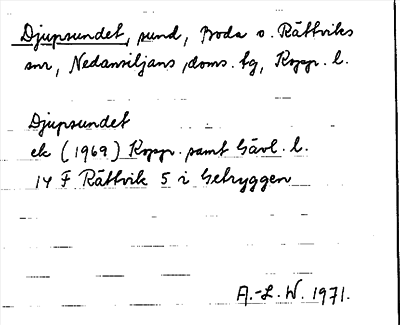 Djupsundet, sund, Boda o. Rättviks
snr, Nedansiljans doms. tg, Kopp. l.
Djupsundet
ek (1969) Kopp. samt Gävl. l.
14 F Rättvik 5 i Getryggen
A.-L. W. 1971.